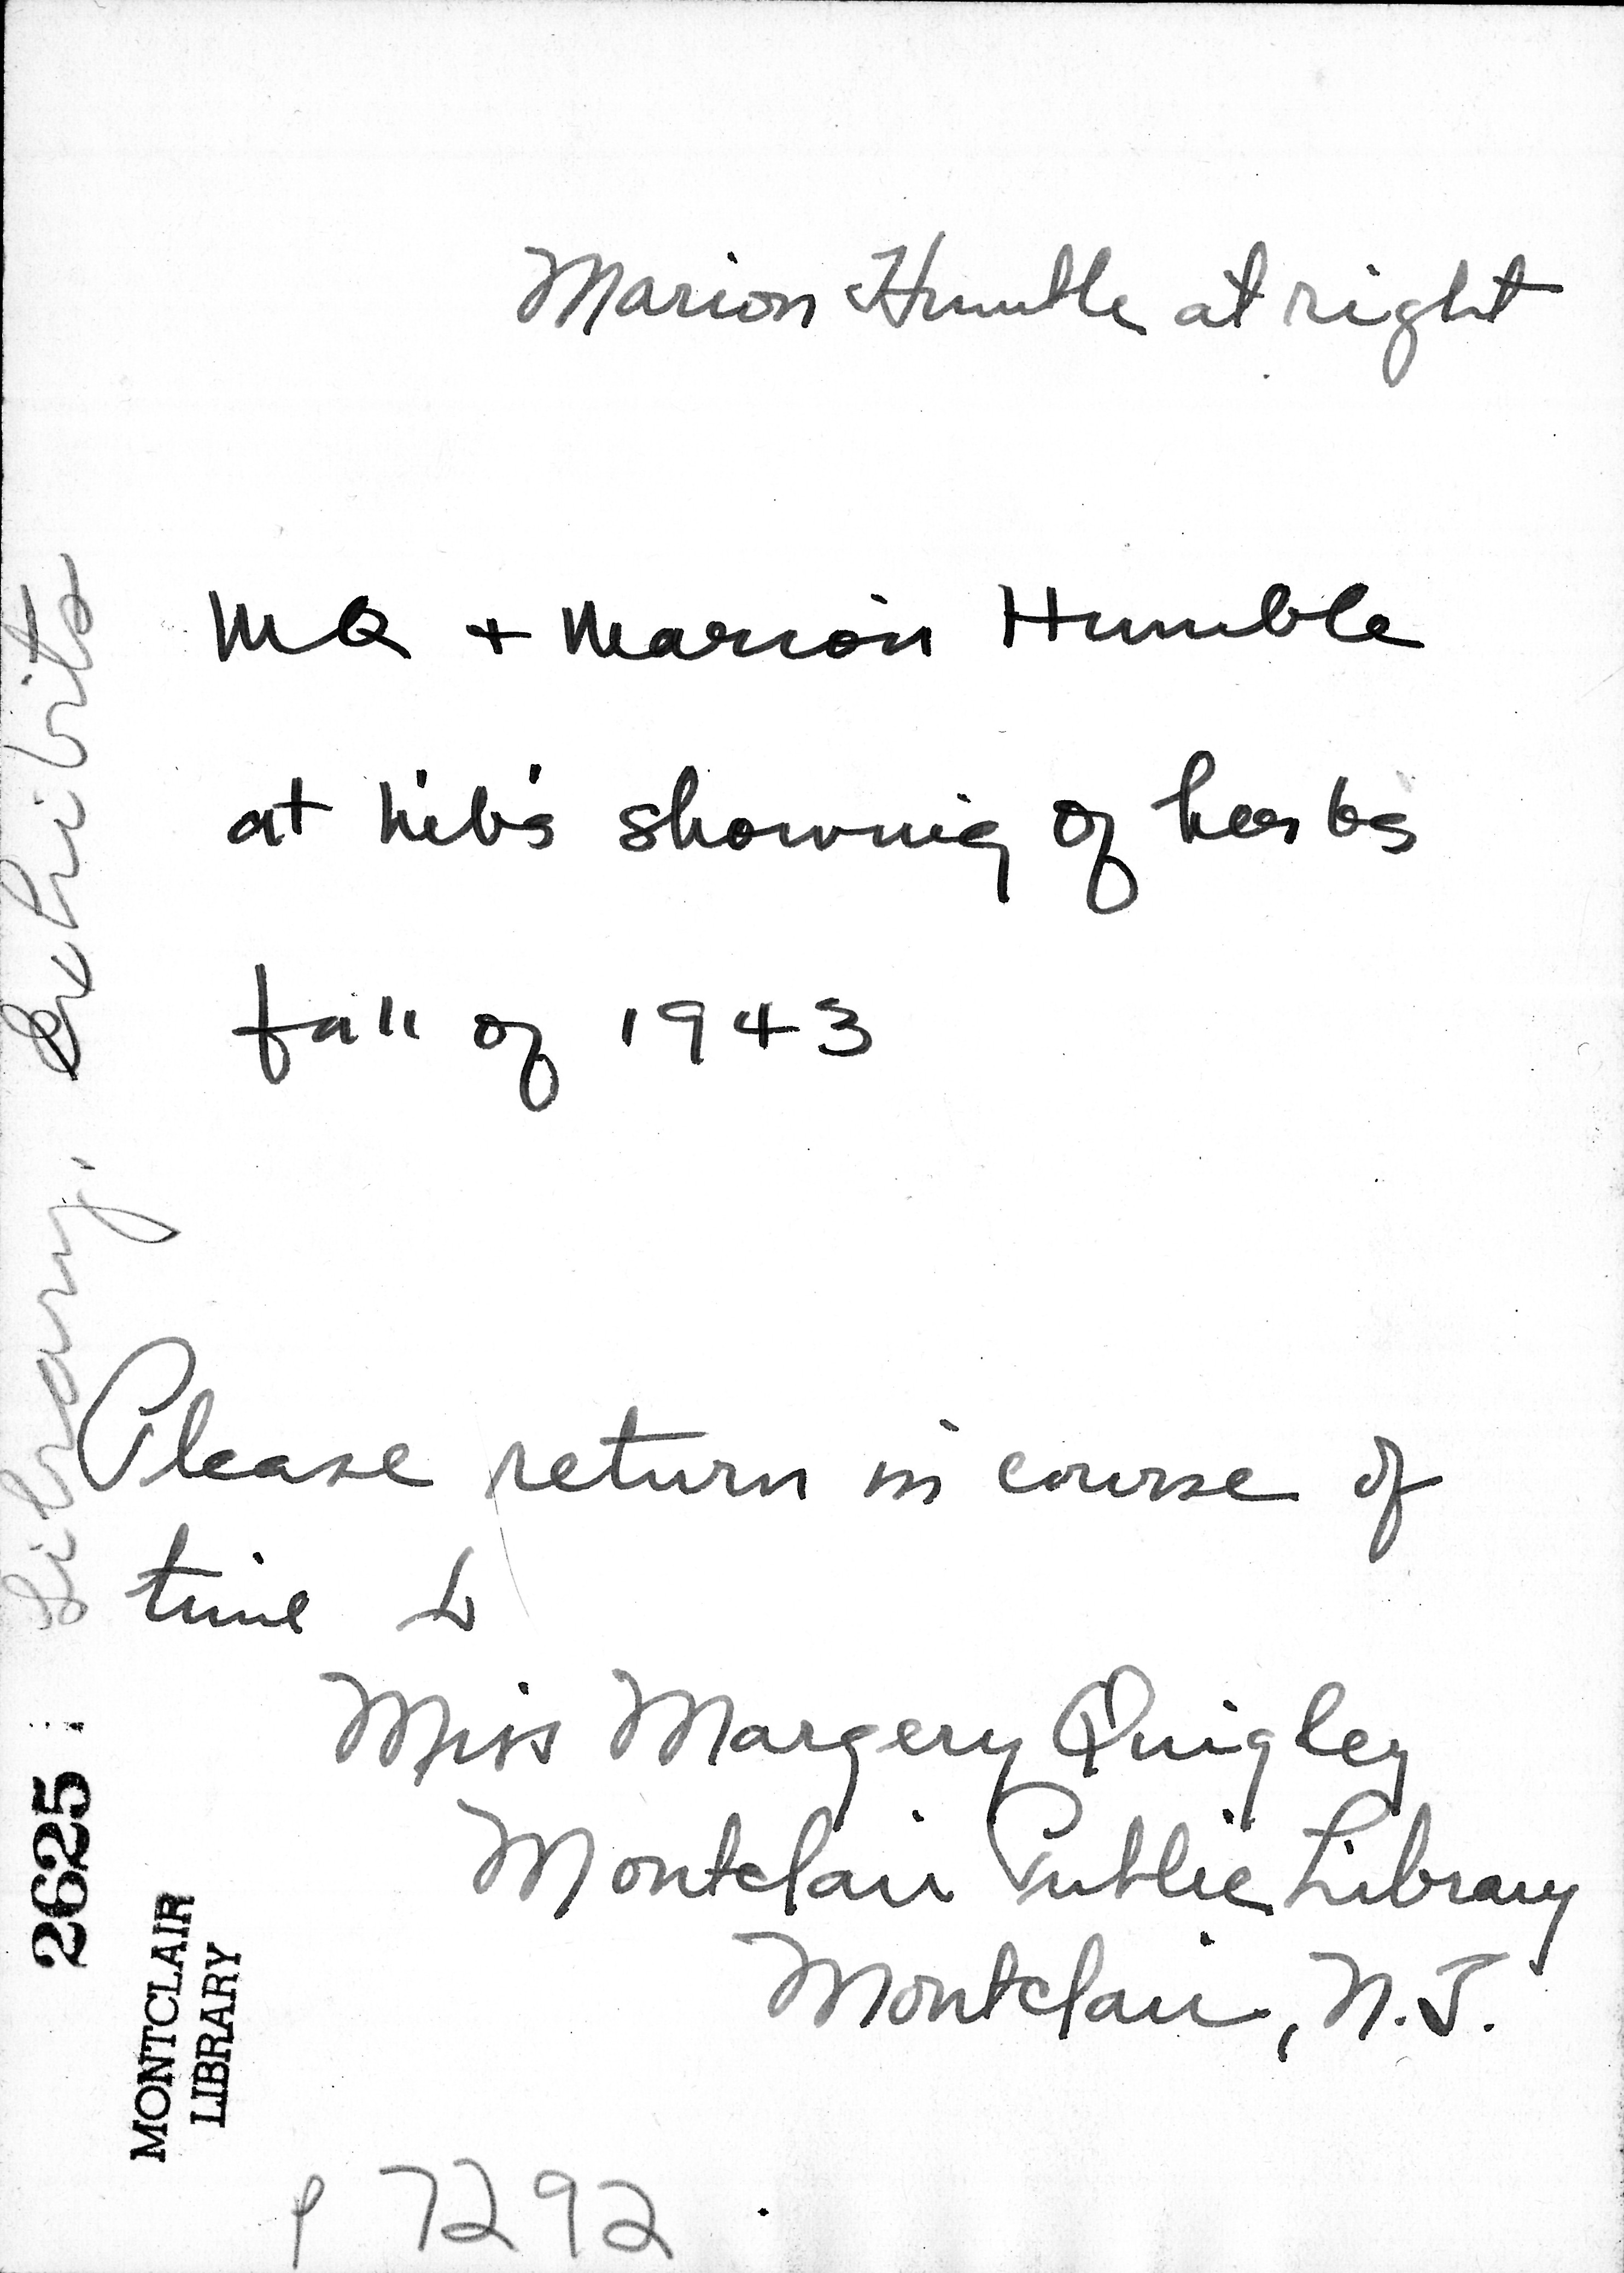 Marion Humble at right
MQ + Marion Humble
at lib's showing of herbs
fall of 1943
Please return in course of
time to
Miss Margery Quigley
Montclair Public Library
Montclair, N.J.
Library. Exhibits
2625
MONTCLAIR
LIBRARY
p 7292